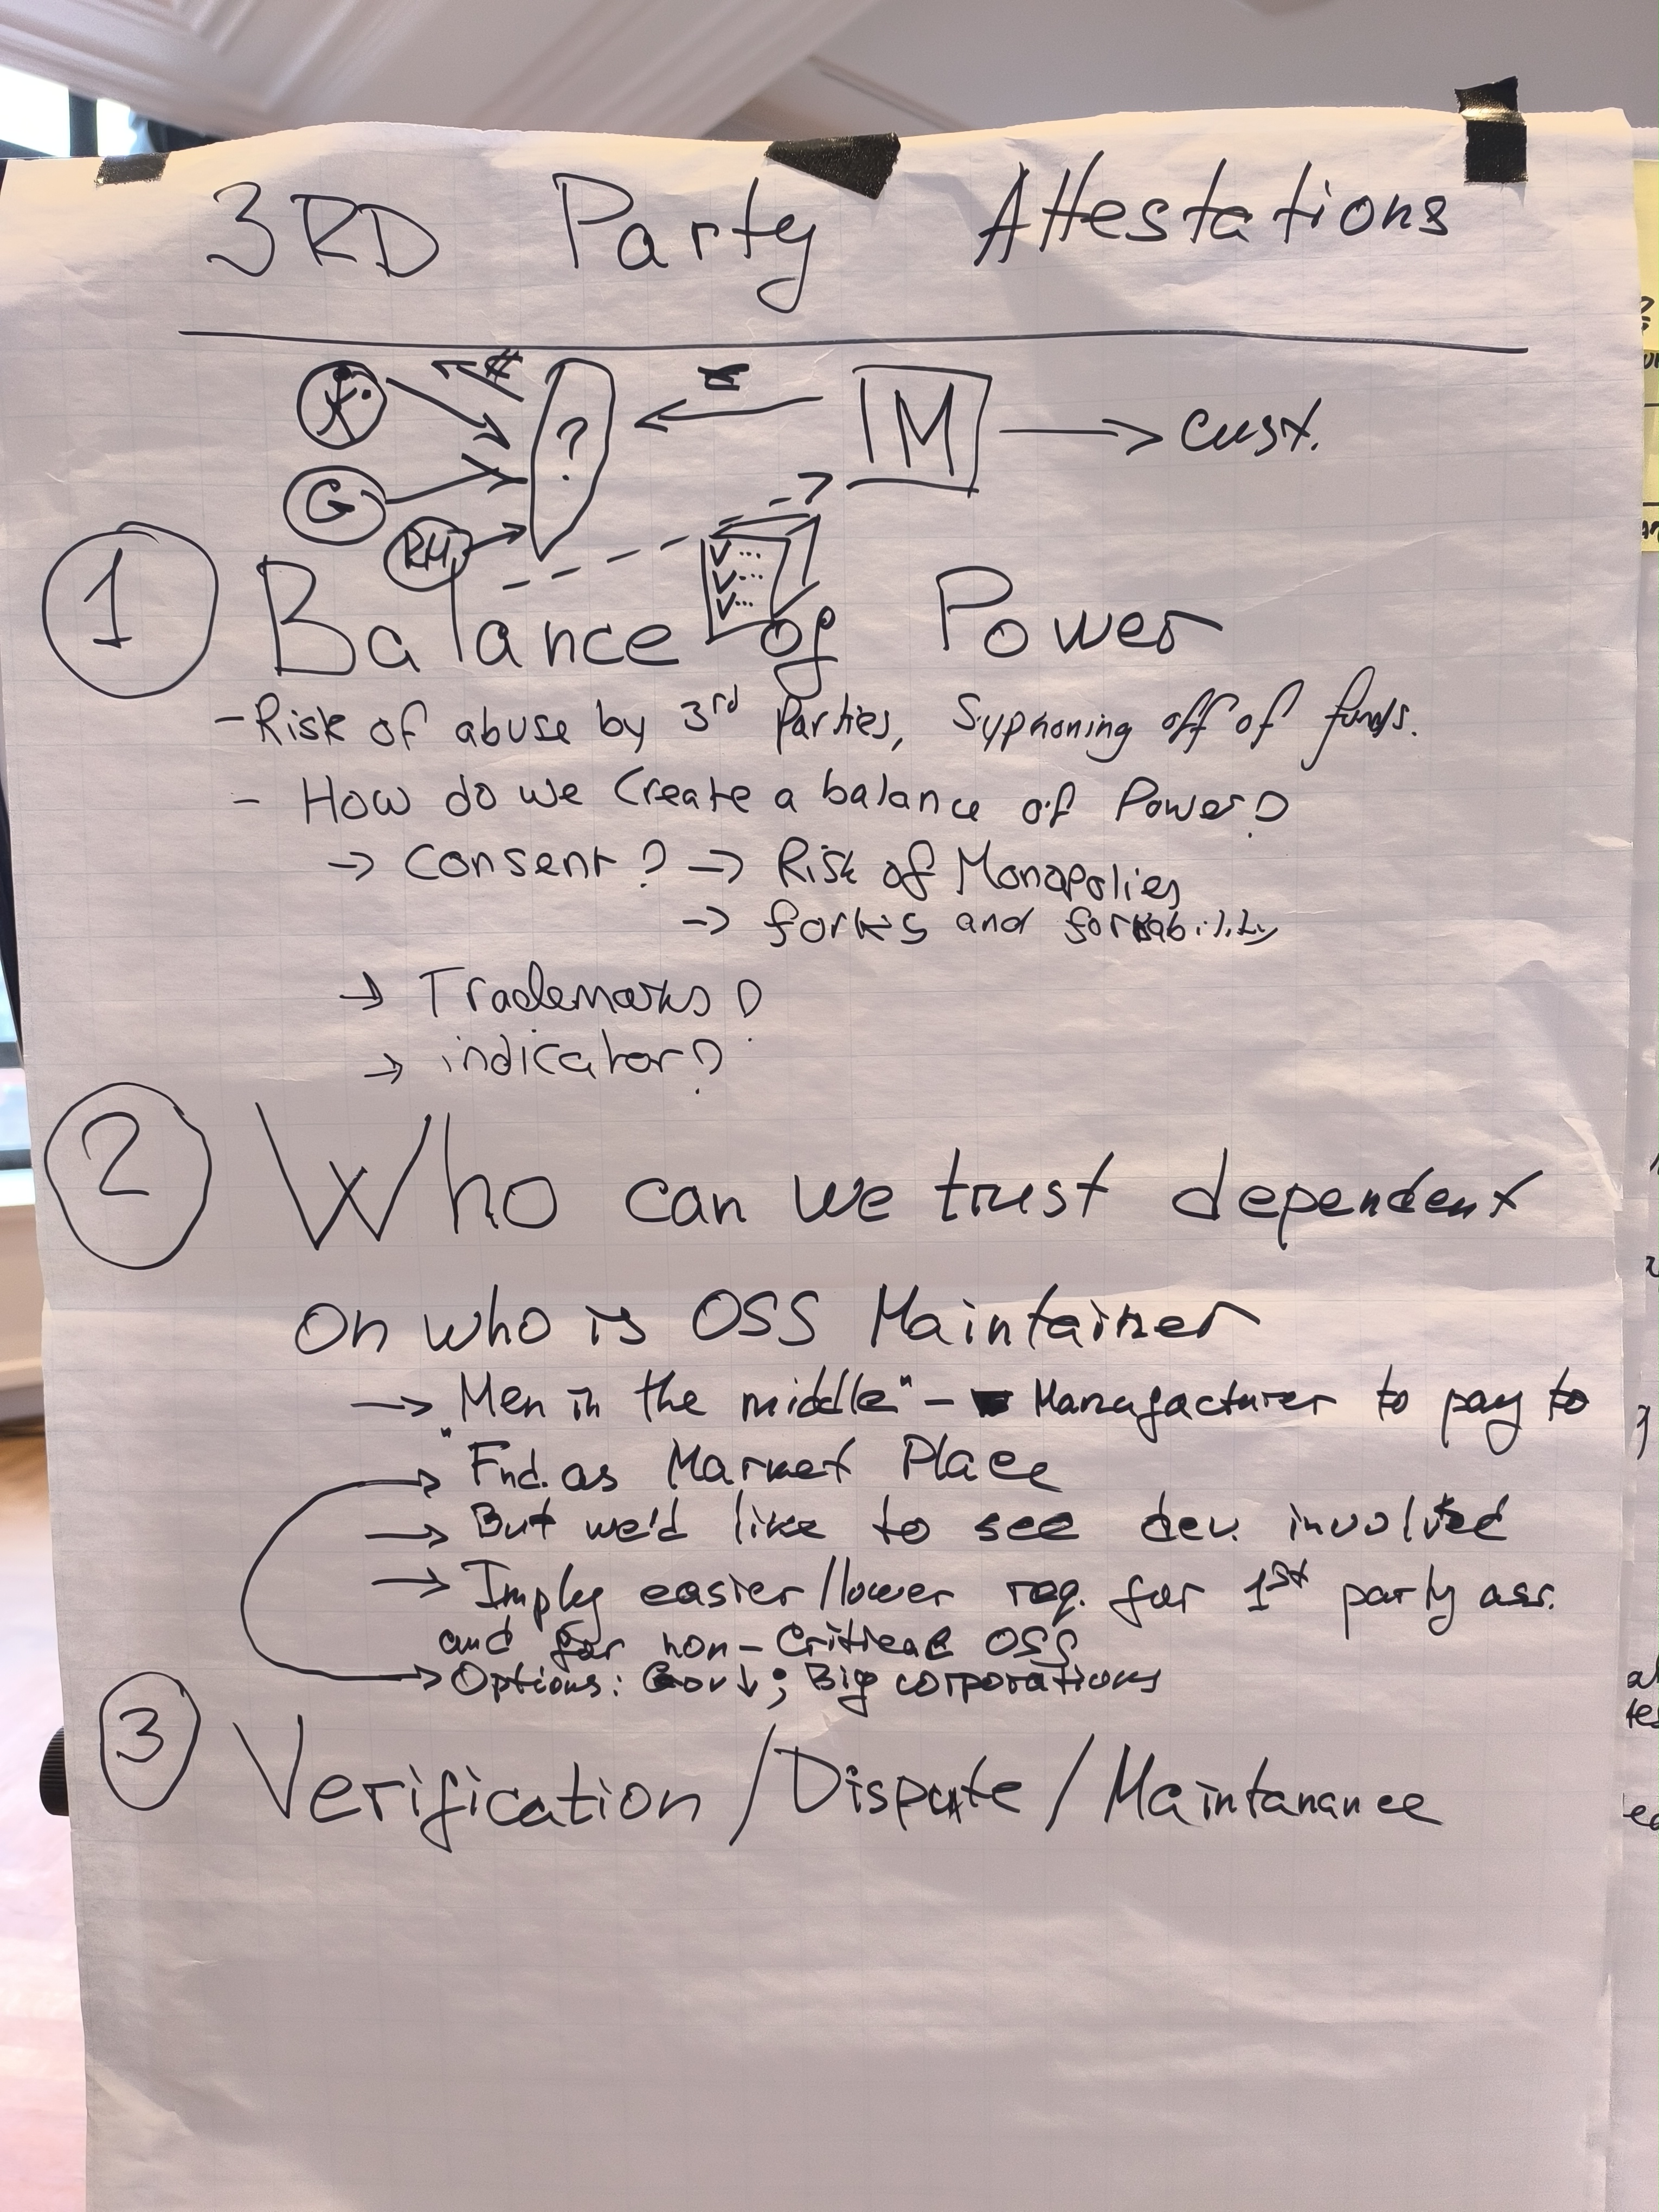 3RD Party Attestations
? M → cust.
G
RH
1 Balance of Power
- Risk of abuse by 3rd Parties, Syphoning off of funds.
- How do we Create a balance of Power?
→ Consent? → Risk of Monopolies
→ forks and forkability
→ Trademarks?
→ indicator?
2 Who can we trust dependent
on who is OSS Maintainer
→ "Men in the middle" - Manufacturer to pay to
→ Fnd. as Market Place
→ But we'd like to see dev. involved
→ Imply easier/lower req. for 1st party ass.
and for non-Critical OSS
→ Options: Gov↓; Big corporations
3 Verification / Dispute / Maintanance